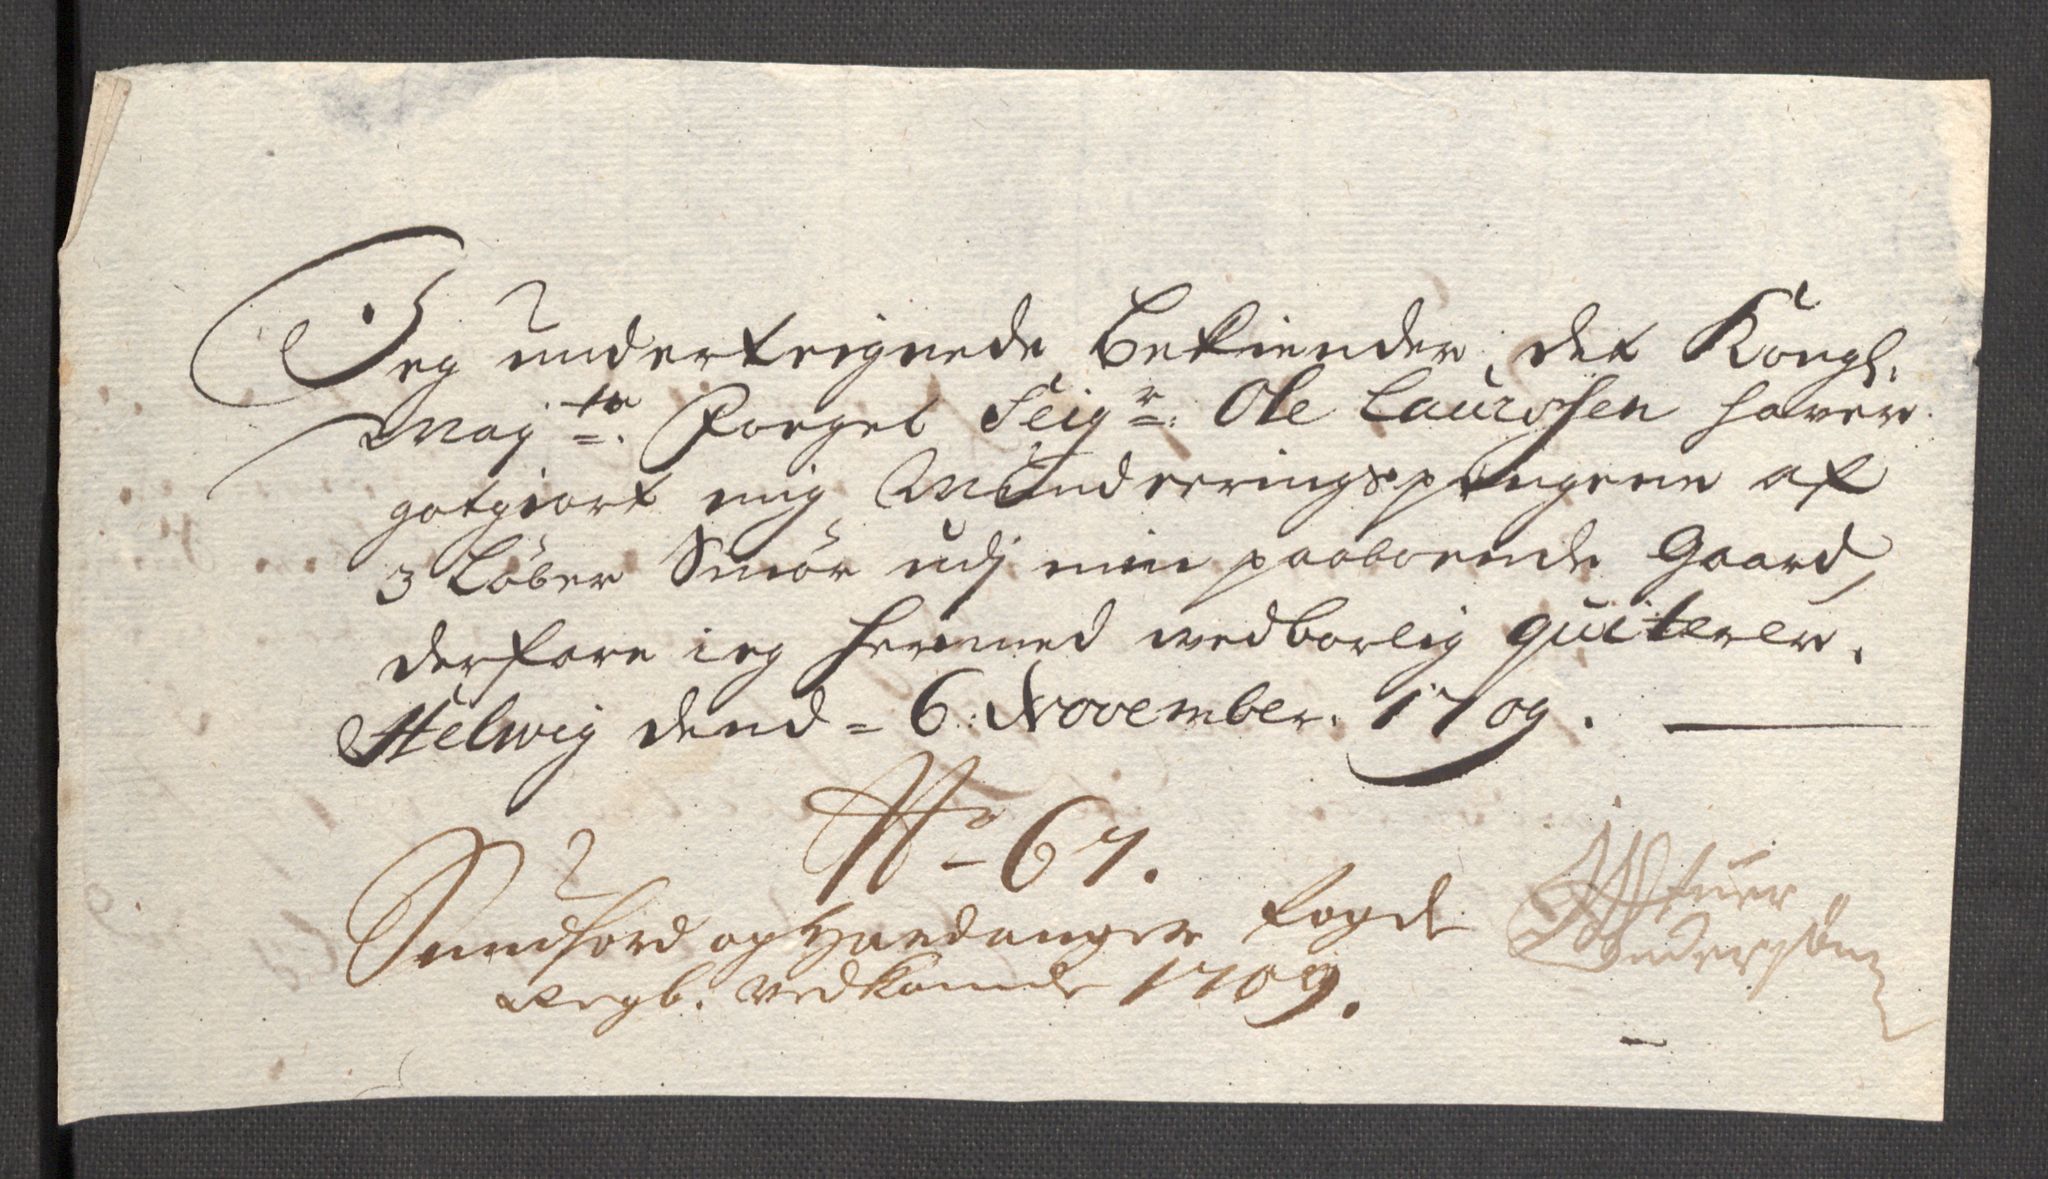 Jeg underteignede Bekiender, det Kongl.
Mayts. Foeget Seigr. Ole Laursøn haver
gotgiort mig Munderingspengene af
3 Løber Smør udj min paaboende Gaard,
derfore ieg hermed vedborlig quiterer.
Helwig dend 6. November. 1709.
No 67.
Sundhord og Hardanger fogde
Regb. vedkomde 1709.
Andersøn